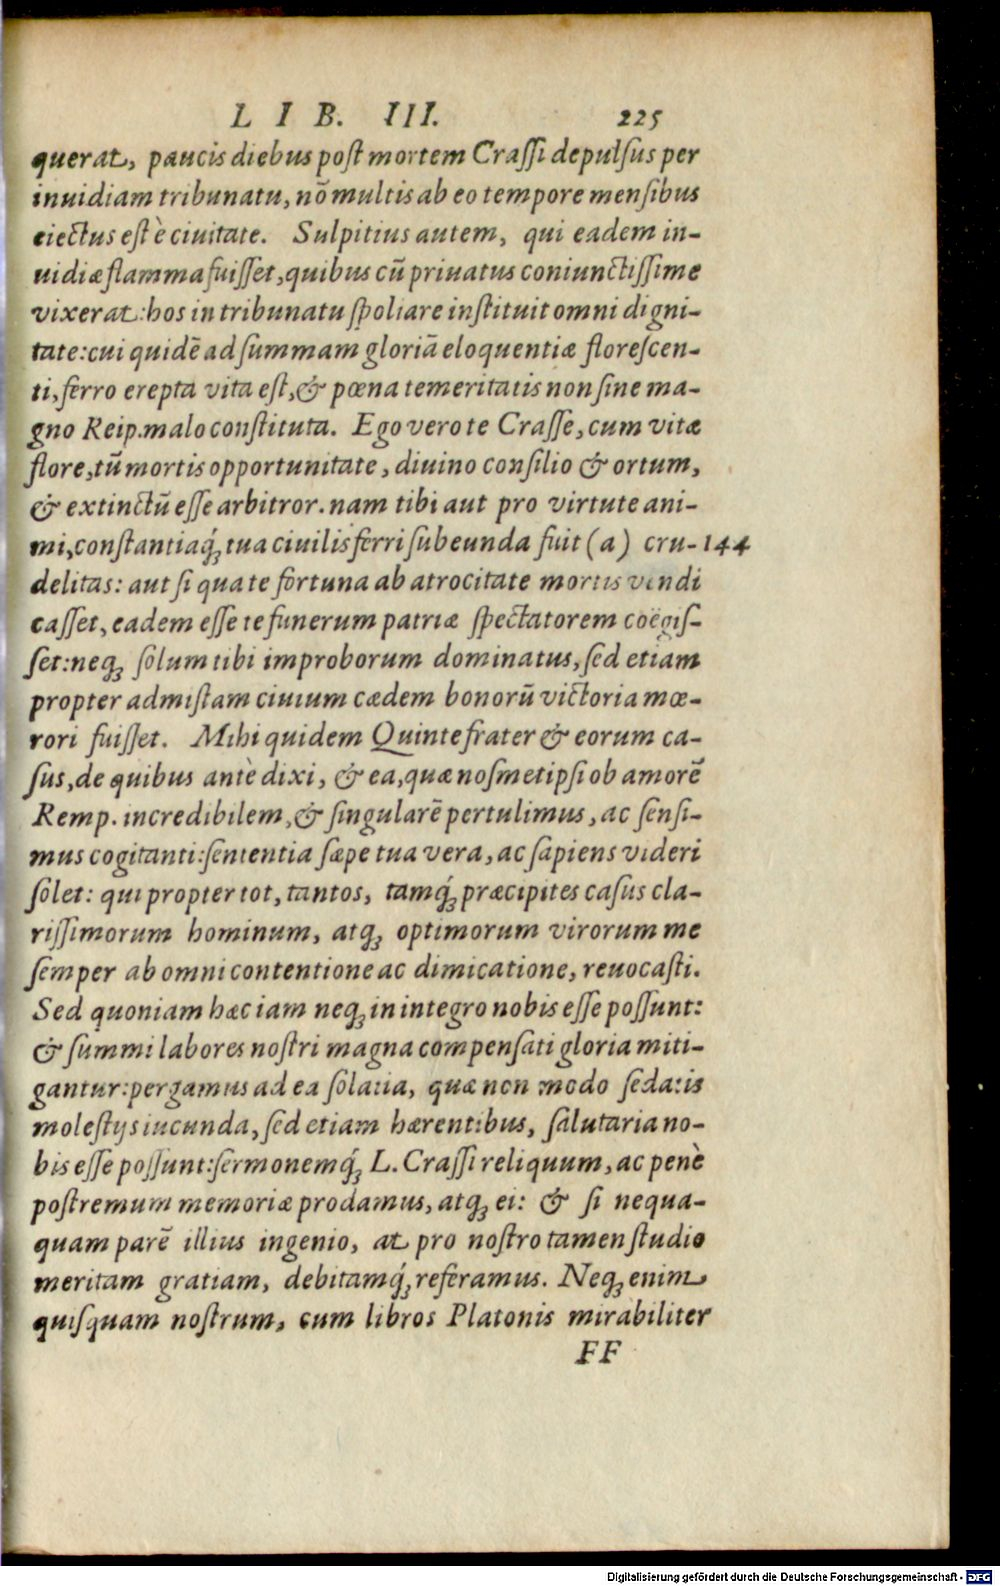 LIB. III. 225
querat, paucis diebus post mortem Crassi depulsus per
inuidiam tribunatu, nō multis ab eo tempore mensibus
eiectus est è ciuitate. Sulpitius autem, qui eadem in-
uidiæ flamma fuisset, quibus cū priuatus coniunctissime
vixerat: hos in tribunatu spoliare instituit omni digni-
tate: cui quidē ad summam gloriā eloquentiæ florescen-
ti, ferro erepta vita est, & pœna temeritatis non sine ma-
gno Reip. malo constituta. Ego vero te Crasse, cum vitæ
flore, tū mortis opportunitate, diuino consilio & ortum,
& extinctū esse arbitror. nam tibi aut pro virtute ani-
mi, constantiaq́; tua ciuilis ferri subeunda fuit (a) cru- 144
delitas: aut si qua te fortuna ab atrocitate mortis vendi
casset, eadem esse te funerum patriæ spectatorem coëgis-
set: neq; solum tibi improborum dominatus, sed etiam
propter admistam ciuium cædem bonorū victoria mœ-
rori fuisset. Mihi quidem Quinte frater & eorum ca-
sus, de quibus antè dixi, & ea, quæ nosmetipsi ob amorē
Remp. incredibilem, & singularē pertulimus, ac sensi-
mus cogitanti: sententia sæpe tua vera, ac sapiens videri
solet: qui propter tot, tantos, tamq́; præcipites casus cla-
rissimorum hominum, atq; optimorum virorum me
semper ab omni contentione ac dimicatione, reuocasti.
Sed quoniam hæc iam neq; in integro nobis esse possunt:
& summi labores nostri magna compensati gloria miti-
gantur: pergamus ad ea solatia, quæ non modo sedatis
molestijs iucunda, sed etiam hærentibus, salutaria no-
bis esse possunt: sermonemq́; L. Crassi reliquum, ac penè
postremum memoriæ prodamus, atq; ei: & si nequa-
quam parē illius ingenio, at pro nostro tamen studio
meritam gratiam, debitamq́; referamus. Neq; enim
quisquam nostrum, cum libros Platonis mirabiliter
FF
Digitalisierung gefördert durch die Deutsche Forschungsgemeinschaft - DFG